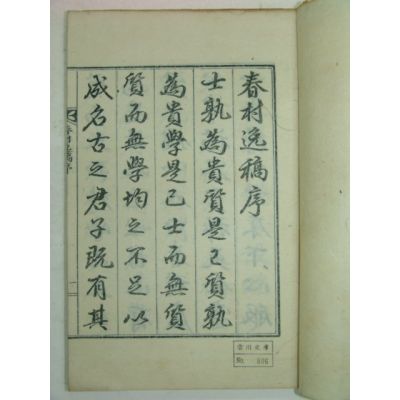 春村逸稿序
士孰為貴質是已質孰
為貴學是已士而無質
質而無學均之不足以
成名古之君子既有其
春村逸稿序
一
雲川文庫
806